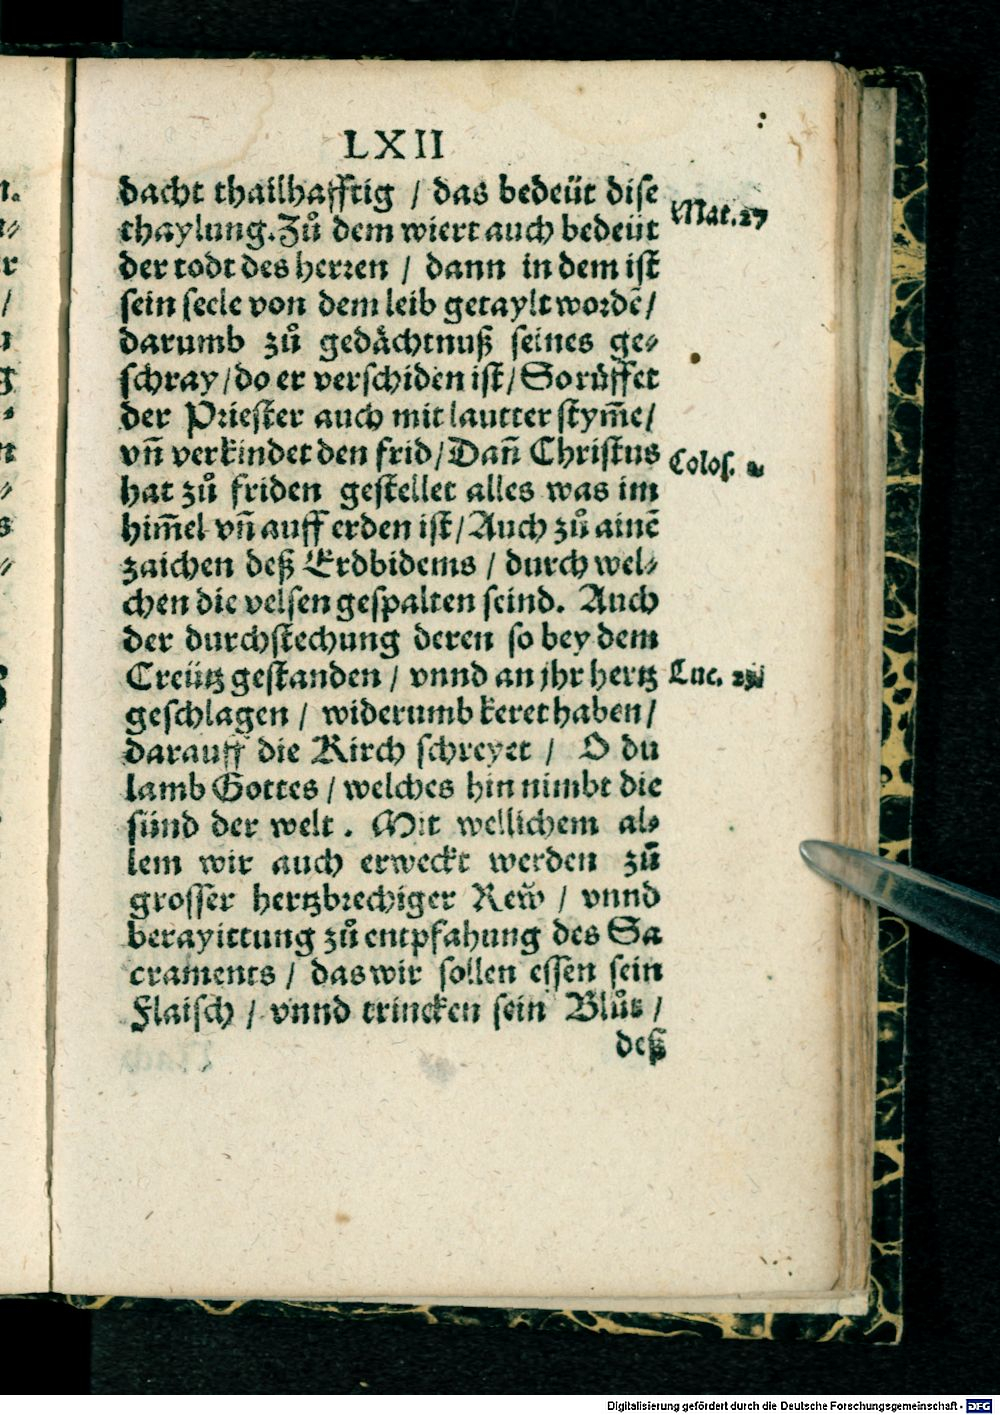 LXII
dacht thailhafftig / das bedeüt dise
thaylung. Zů dem wiert auch bedeüt
Mat. 27
der todt des herren / dann in dem ist
sein seele von dem leib getaylt wordē /
darumb zů gedächtnuß seines ge⸗
schray / do er verschiden ist / So rüffet
der Priester auch mit lautter stym̄e /
vn̄ verkindet den frid / Dan̄ Christus
Colos.
hat zů friden gestellet alles was im
him̄el vn̄ auff erden ist / Auch zů ainē
zaichen deß Erdbidems / durch wel⸗
chen die velsen gespalten seind. Auch
der durchstechung deren so bey dem
Creütz gestanden / vnnd an jhr hertz
Luc.
geschlagen / widerumb keret haben /
darauff die Kirch schreyet / O du
lamb Gottes / welches hin nimbt die
sünd der welt . Mit wellichem al⸗
lem wir auch erweckt werden zů
grosser hertzbrechiger Rew̆ / vnnd
berayittung zů entpfahung des Sa
craments / das wir sollen essen sein
Flaisch / vnnd trincken sein Blůt /
deß
Digitalisierung gefördert durch die Deutsche Forschungsgemeinschaft - DFG